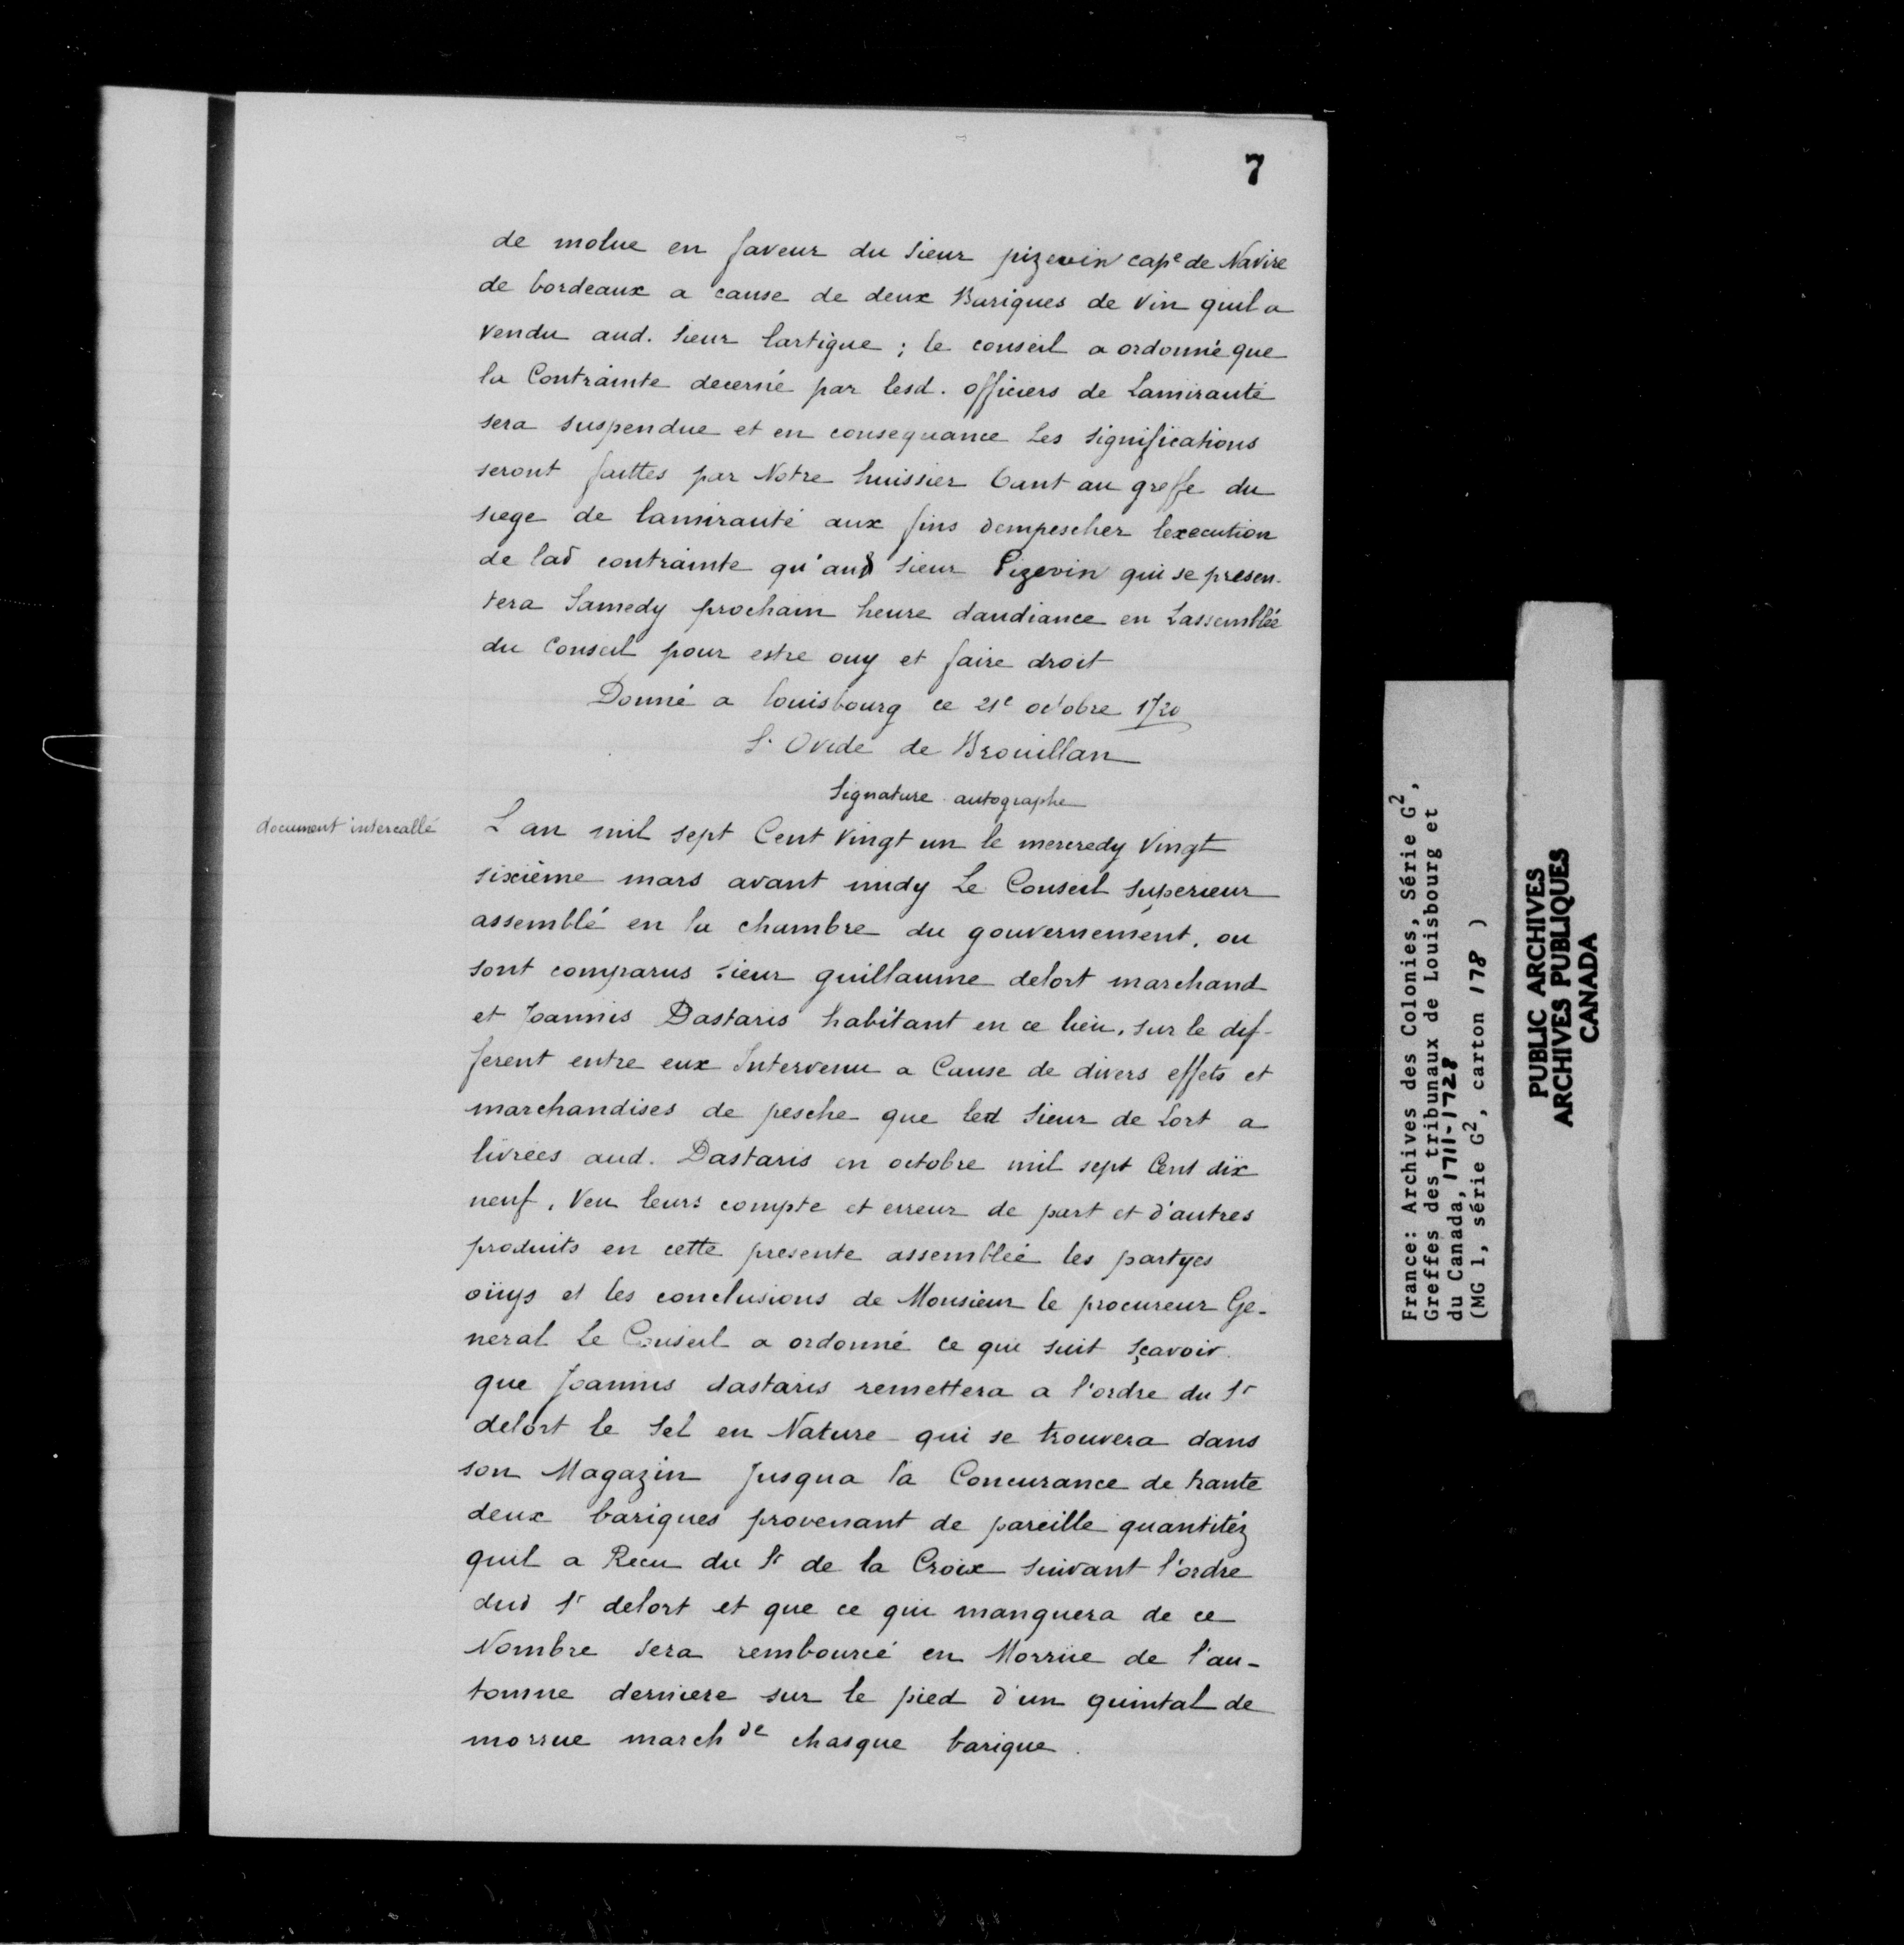 7
de molue en faveur du Sieur pizevin cape de Navire
de bordeaux a cause de deux Bariques de Vin quil a
Vendu aud. Sieur lartigue ; le conseil a ordonné que
la Contrainte decerné par lesd. officiers de Lamirauté
sera suspendue et en consequance Les significations
seront faittes par Notre huissier tant au greffe du
siege de lamirauté aux fins dempescher lexecution
de lad contrainte qu'aud Sieur Pizevin qui se presen-
tera Samedy prochain heure daudiance en Lassemblée
du Conseil pour estre ouy et faire droit
Donné a louisbourg ce 21e octobre 1720
St Ovide de Brouillan
Signature autographe
document intercallé
L an mil sept Cent Vingt un le mercredy Vingt
sixième mars avant midy Le Conseil Superieur
assemblé en la chambre du gouvernement, ou
sont comparus sieur guillaume delort marchand
et Joannis Dastaris habitant en ce lieu, sur le dif-
ferent entre eux Intervenu a Cause de divers effets et
marchandises de pesche que led Sieur de Lort a
livrées aud. Dastaris en octobre mil sept Cent dix
neuf, Veu leurs compte et erreur de part et d'autres
produits en cette presente assemblée les partyes
oüys et les conclusions de Monsieur le procureur Ge-
neral Le Conseil a ordonné ce qui suit sçavoir.
que Joannis dastaris remettera a l'ordre du Sr
delort le Sel en Nature qui se trouvera dans
son Magazin Jusqua la Concurance de trante
deux bariques provenant de pareille quantitéz
quil a Recu du Sr de la Croix suivant l'ordre
dud Sr delort et que ce qui manquera de ce
Nombre sera remboursé en Morrüe de l'au-
tomne derniere sur le pied d'un quintal de
morrue march de chasque barique.
France: Archives des Colonies, Série G2,
Greffes des tribunaux de Louisbourg et
du Canada, 1711-1728
(MG 1, série G2, carton 178 )
PUBLIC ARCHIVES
ARCHIVES PUBLIQUES
CANADA